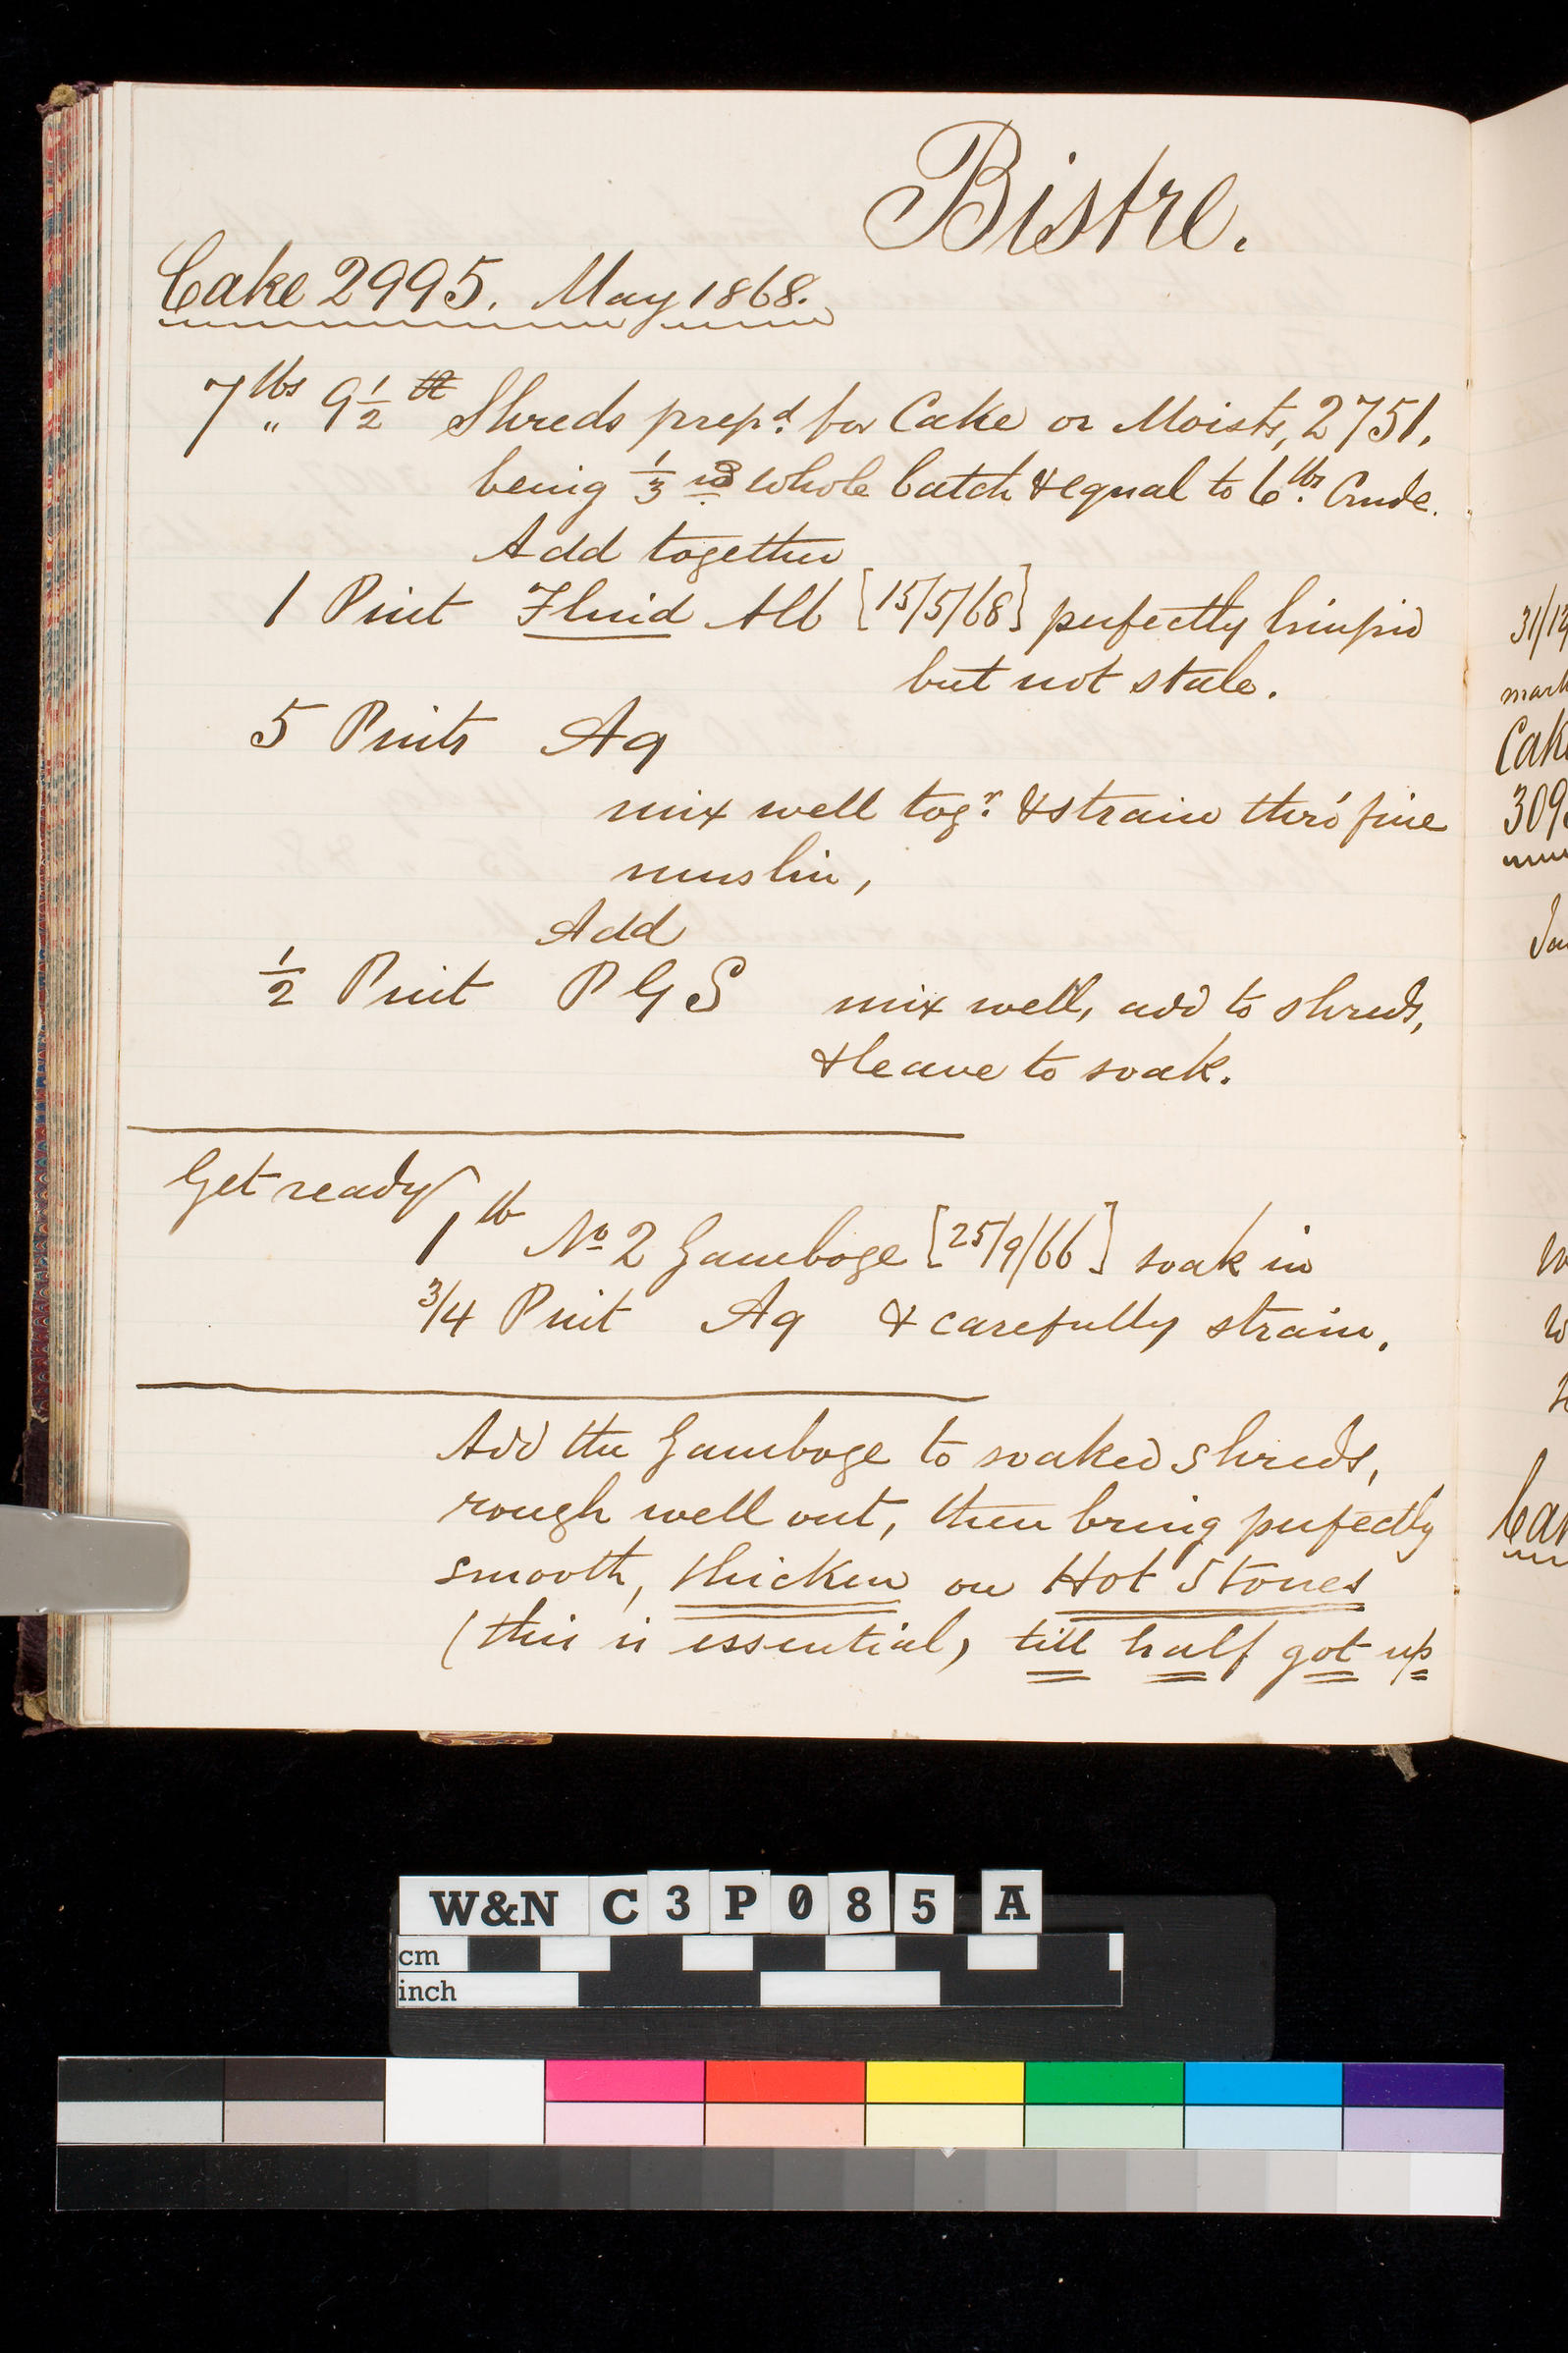 Bistre.
Cake 2995. May 1868.
7 lbs „ 9½ Shreds prepd. for Cake or Moists, 2751,
being ⅓ rd whole batch & equal to 6 lbs. Crude.
Add together
1 Pint Fluid Alb [15/5/68] perfectly limpid
but not stale.
5 Pints Aq
mix well togr. & strain thro' fine
muslin,
Add
½ Pint P G S mix well, add to shreds,
& leave to soak.
Get ready
1 lb No 2 Gamboge [25/9/66] soak in
3/4 Pint Aq & carefully strain.
Add the Gamboge to soaked shreds,
rough well out, then bring perfectly
smooth, thicken on Hot Stones
(this is essential) till half got up
31/12
mark
Cake
309
W&N C3P085 A
cm
inch